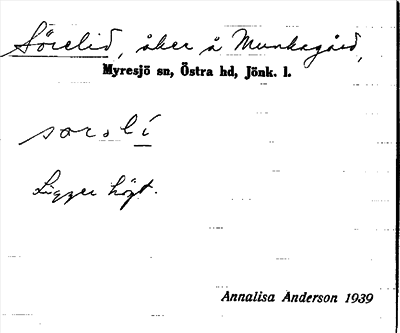 Sörelid, åker å Munkagård,
Myresjö sn, Östra hd, Jönk. l.
sor.lí
Ligger högt.
Annalisa Anderson 1939